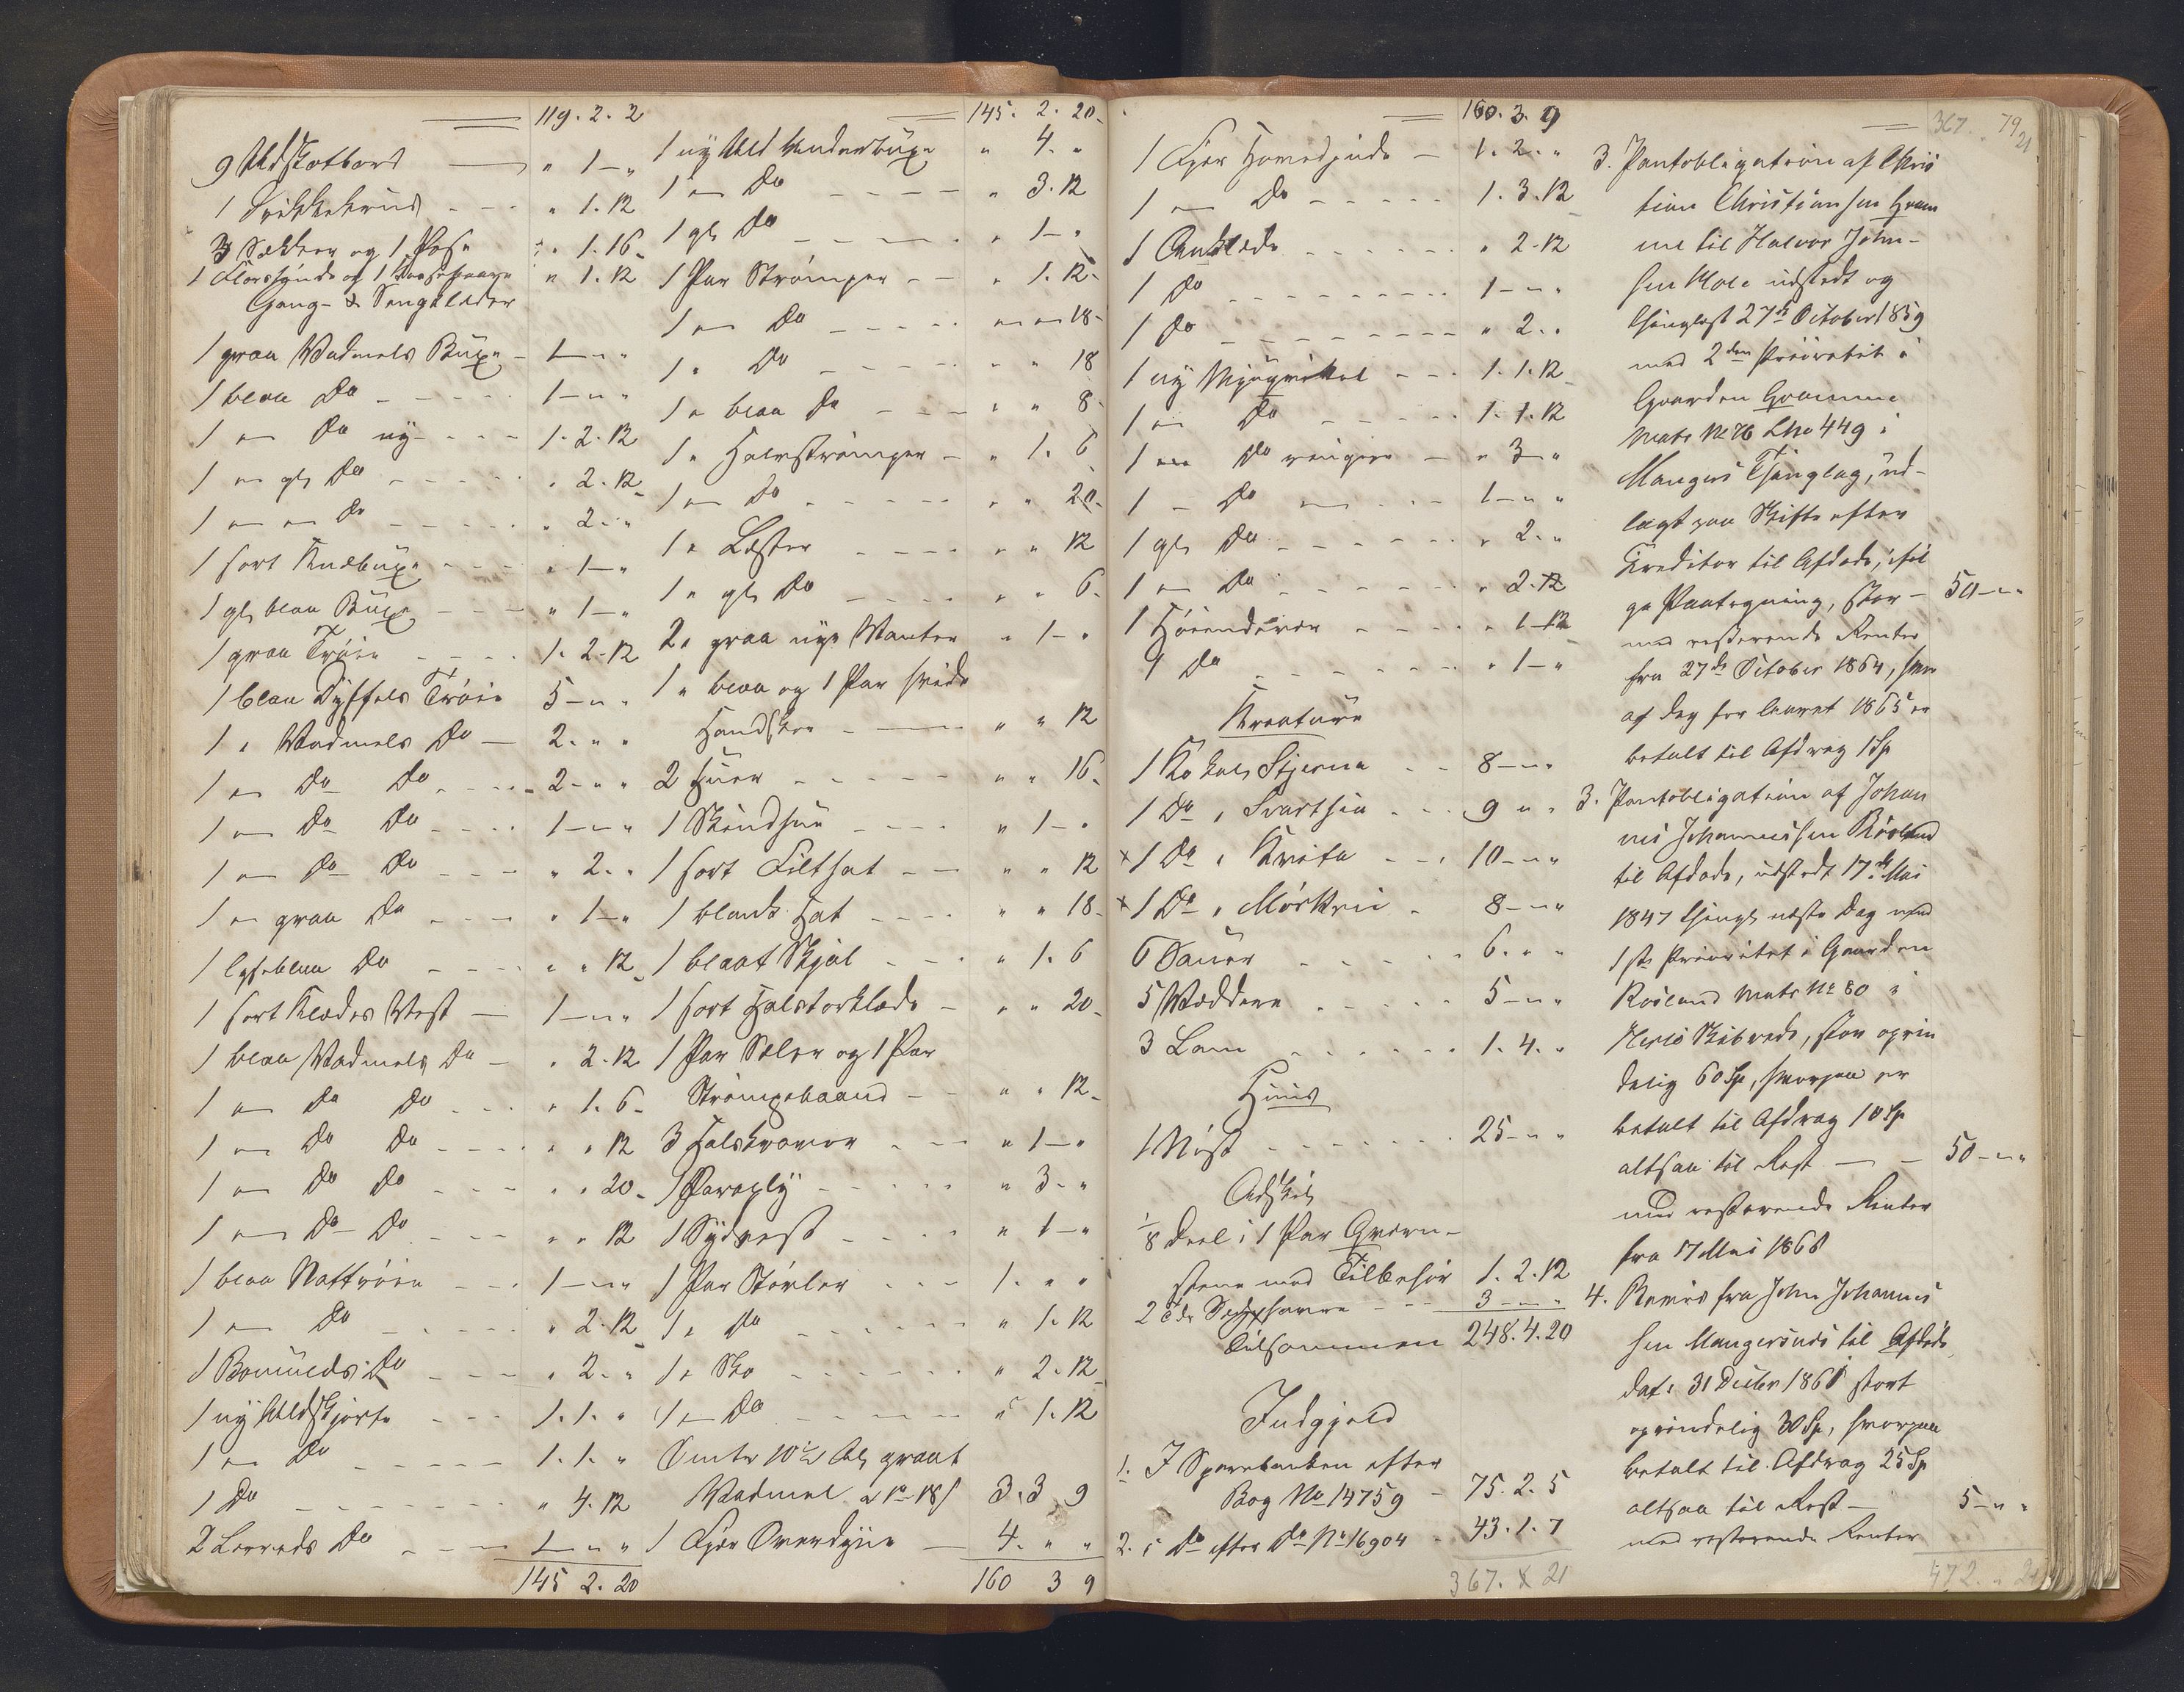 119. 2. 2
9 Uldskotbord — " 1 — "
1 Drikkekrus - - - " 1. 12
3 Sekker og 1 Pose " 1. 16
1 " 1. 12
Gang- & Sengklæder
1 graa Vadmels Buxe - 1 — " "
1 blaa Do - - - - 1 — " "
1 " Do ny - - - 1. 2. 12
1 " gl. Do - - - - " 2. 12
1 " " Do - - - - " 2. "
1 sort Knæbuxe - - - " 1 — "
1 gl. blaa Buxe - - - " 1 — "
1 graa Trøie - - - - 1. 2. 12
1 blaa Dyffels Trøie 5 — " "
1 " Vadmels Do — 2. " "
1 " Do Do - - - - 2 - " "
1 " Do Do - - - - 1 — " "
1 " Do Do - - - " 2. "
1 " graa Do - - - " 1 — "
1 lyseblaa Do - - - - " " 12
1 sort Klædes Vest — 1 — " "
1 blaa Vadmels Do — " 2. 12
1 " Do Do - - - " 1. 6
1 " Do Do - - - - " " 12
1 " Do Do - - - " " 20
1 " Do Do - - - " " 12
1 blaa Nattrøie - - - 1 — " "
1 " Do - - - - " 2. 12
1 Bomulds Do - - - " 2. "
1 ny Uldskjorte - - - 1. 1. "
1 " Do - - - - - 1. 1. "
1 Do - - - - - - " 4. 12
2 Lerreds Do - - - 1 " "
145 2. 20
145. 2. 20
1 ny Uld Underbuxe " 4. "
1 " Do - - - - - " 3. 12
1 gl. Do - - - - " 1 — "
1 Par Strømper - - " 1. 12
1 " Do - - - - - " " 18
1 " Do - - - - - " " 18
1 " blaa Do - - - " " 8
1 " Halvstrømper - " 1. 6
1 " Do - - - - - " " 20
1 " Læster - - - - " " 12
1 " gl. Do - - - - " " 6
2 " graa nye Vanter " 1 — "
1 " blaa og 1 Par hvide
Handsker - — " " 12
2 Huer - - - - - " " 16
1 Skindhue - - - - " 1 — "
1 sort Filthat - - " " 12
1 blank Hat - - - - " " 18
1 blaat Skjal - - - " 1. 6
1 sort Halstørklæde - " " 20
1 Par Seler og 1 Par
Strømpebaand - - " " 12
3 Halskraver - - - " 1 — "
1 Paraply - - - - - " 3. "
1 Sydvest - - - - " 1 — "
1 Par Støvler - - - 1. " "
1 " Do - - - - - " 1. 12
1 " Sko - - - - - " 2. 12
1 " Do - - - - - " 1. 12
Omtr 10½ Al. graat
Vadmel a 1 - 18/ 3. 3 9
1 Fjær Overdyne — 4. " "
160 3 9
160. 3. 9
1 Fjær Hovedpude — 1. 2. "
1 " Do - - - - - 1. 3. 12
1 - - - - " 2. 12
1 Do - - - - - - 1 — " "
1 Do - - - - - - " 2. "
1 ny - - - 1. 1. 12
1 " Do - - - - 1. 1. 12
1 " Do ringere - " 3 — "
1 - Do " - - 1 — " "
1 gl. Do - - - - - " 2. "
1 " Do - - - - - " 2. 12
1 - - - - " 1 — 12
1 Do - - - - " 1 — "
Kreature
1 Ko kal. Stjerna - - 8 — " "
1 Do " Svartsia - - - 9 " "
× 1 Do " Kvita - - - 10 — " "
× 1 Do " Mørkrei - 8 — " "
6 Sauer - - - - - 6. " "
5 Væddere - - - - 5 — " "
3 Lam - - - - - 1. 4. "
Huus
1 Nøst - - - - - - 25 — " "
Adskil.
1/8 Deel i 1 Par Qværn-
stene med Tilbehør 1. 2. 12
2 - - 3 — " "
Tilsammen 248. 4. 20
Indgjæld
1. I Sparebanken efter
Bog No 14759 - 75. 2. 5
2. i Do efter Do No 16904 - 43. 1. 7
367. 21
367. 79
21
3. Pantobligation af Chris
tian Christiansen Gram
me til Halvor John-
sen udstedt og
thinglæst 27de October 1859
med 2den Prioritet i
Gaarden Gramme
Matr No 76 LNo 449 i
Mangers Thinglag, ud-
lagt paa Skifte efter
Kreditor til Afdøde, iføl
ge Paategning, stor - 50 — " "
med resterende Renter
fra 27de October 1864, hvor
af dog for Aaret 1865 er
betalt til Afdrag 1 Sp
3. Pantobligation af Johan
nes Johannessen Røsland
til Afdøde, udstedt 17de Mai
1847 thingl. næste Dag med
1ste Prioritet i Gaarden
Røsland Matr No 80 i
Skibrede, stor oprin
delig 60 Sp, hvorpaa er
betalt til Afdrag 10 Sp
altsaa til Rest — - 50 - " "
med resterende Renter
fra 17 Mai 1868
4. Beviis fra John Johannes
sen Mangersnes til Afdøde
dat. 31 Decbr 1861 stort
oprindelig 30 Sp, hvorpaa
betalt til Afdrag 25 Sp
altsaa til Rest — 5 — " "
med resterende Renter
472. " 21